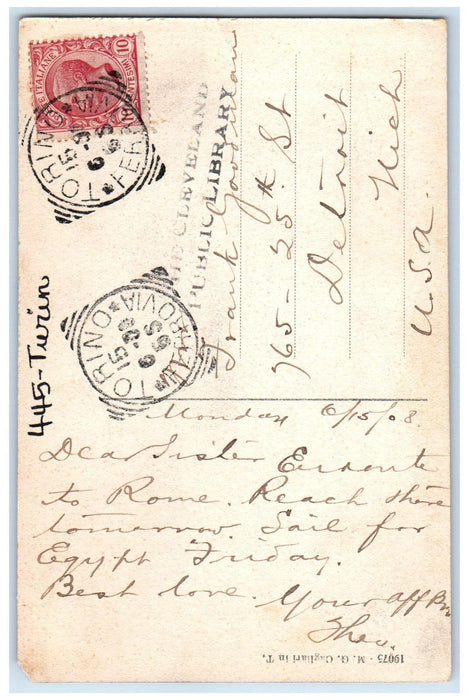 POSTE ITALIANE
CENTESIMI 10
TORINO
15-6
FERROVIA
THE CLEVELAND
PUBLIC LIBRARY
Frank Goodman
965-25th St
Detroit
Mich
U.S.A.
TORINO
15-6
FERROVIA
445-Turin
Monday 6/15/08.
Dear Sister Enroute
to Rome. Reach there
tomorrow. Sail for
Egypt Friday.
Best love. Your aff Bro
Theo.
19075 - M. G. Cagliari in T.